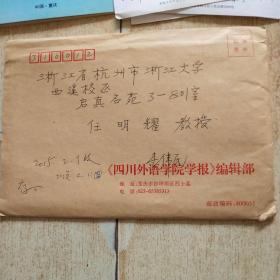 中国·重庆
310013
浙江省杭州市浙江大学
西溪校区
启真名苑3-801室
任明耀 教授
2015.
《四川外语学院学报》编辑部
地 址：重庆市沙坪坝区烈士墓
电 话：023-65385313
邮政编码：400031